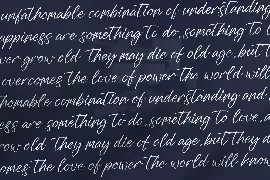 unfathomable combination of understanding
appiness are something to do, something to
ver grow old. They may die of old age, but
overcomes the love of power the world will
homable combination of understanding and
ess are something to do, something to love, a
row old. They may die of old age, but they d
omes the love of power the world will know